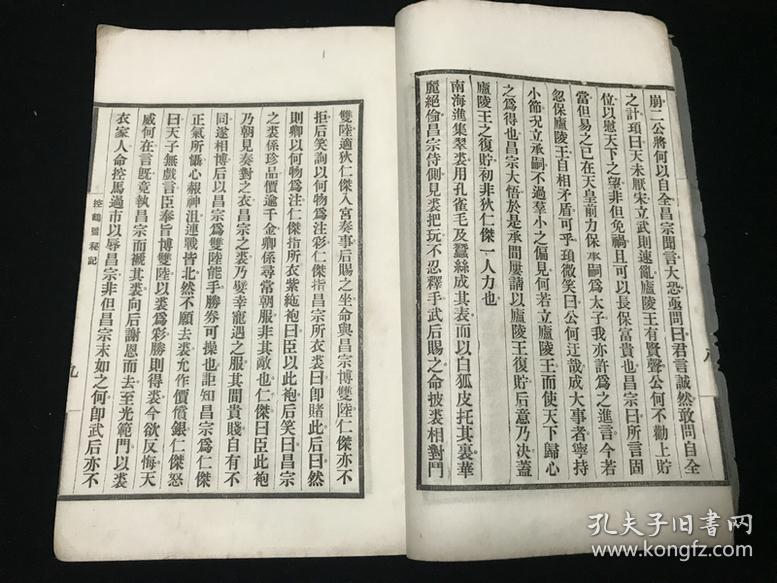 崩二公將何以自全昌宗聞言大恐亟問曰君言誠然敢問自全
之計頊曰天未厭宋立武則速亂廬陵王有賢聲公何不勸上貯
位以慰天下之望非但免禍且可以長保富貴也昌宗曰所言固
當但易之已在天皇前力保承嗣爲太子我亦許爲之進言今若
忽保廬陵王自相矛盾可乎頊微笑曰公何迂哉成大事者寧持
小節况立承嗣不過羣小之偏見何若立廬陵王而使天下歸心
之爲得也昌宗大悟於是承間屢請以廬陵王復貯后意乃決蓋
廬陵王之復貯初非狄仁傑一人力也
南海進集翠裘用孔雀毛及蠶絲成其表而以白狐皮托其裏華
麗絕倫昌宗侍側見裘把玩不忍釋手武后賜之命披裘相對鬥
雙陸適狄仁傑入宮奏事后賜之坐命與昌宗博雙陸仁傑亦不
拒后笑詢以何物爲注彩仁傑指昌宗所衣裘曰卽賭此后曰然
則卿以何物爲注仁傑指所衣紫絁袍曰臣以此袍后笑曰昌宗
之裘係珍品價逾千金卿係尋常朝服非其敵也仁傑曰臣此袍
乃朝見奏對之衣昌宗之裘乃嬖幸寵遇之服其間貴賤自有不
同遂相博后以昌宗爲雙陸能手勝劵可操也詎知昌宗爲仁傑
正氣所懾心赧神沮連戰皆北然不願去裘允作價償銀仁傑怒
曰天子無戲言臣奉旨博雙陸以裘爲彩勝則得裘今欲反悔天
威何在言旣竟執昌宗而襪其裘向后謝恩而去至光範門以裘
衣家人命控馬過市以辱昌宗非但昌宗末如之何卽武后亦不
控鶴監秘記
九
孔夫子旧书网
www.kongfz.com